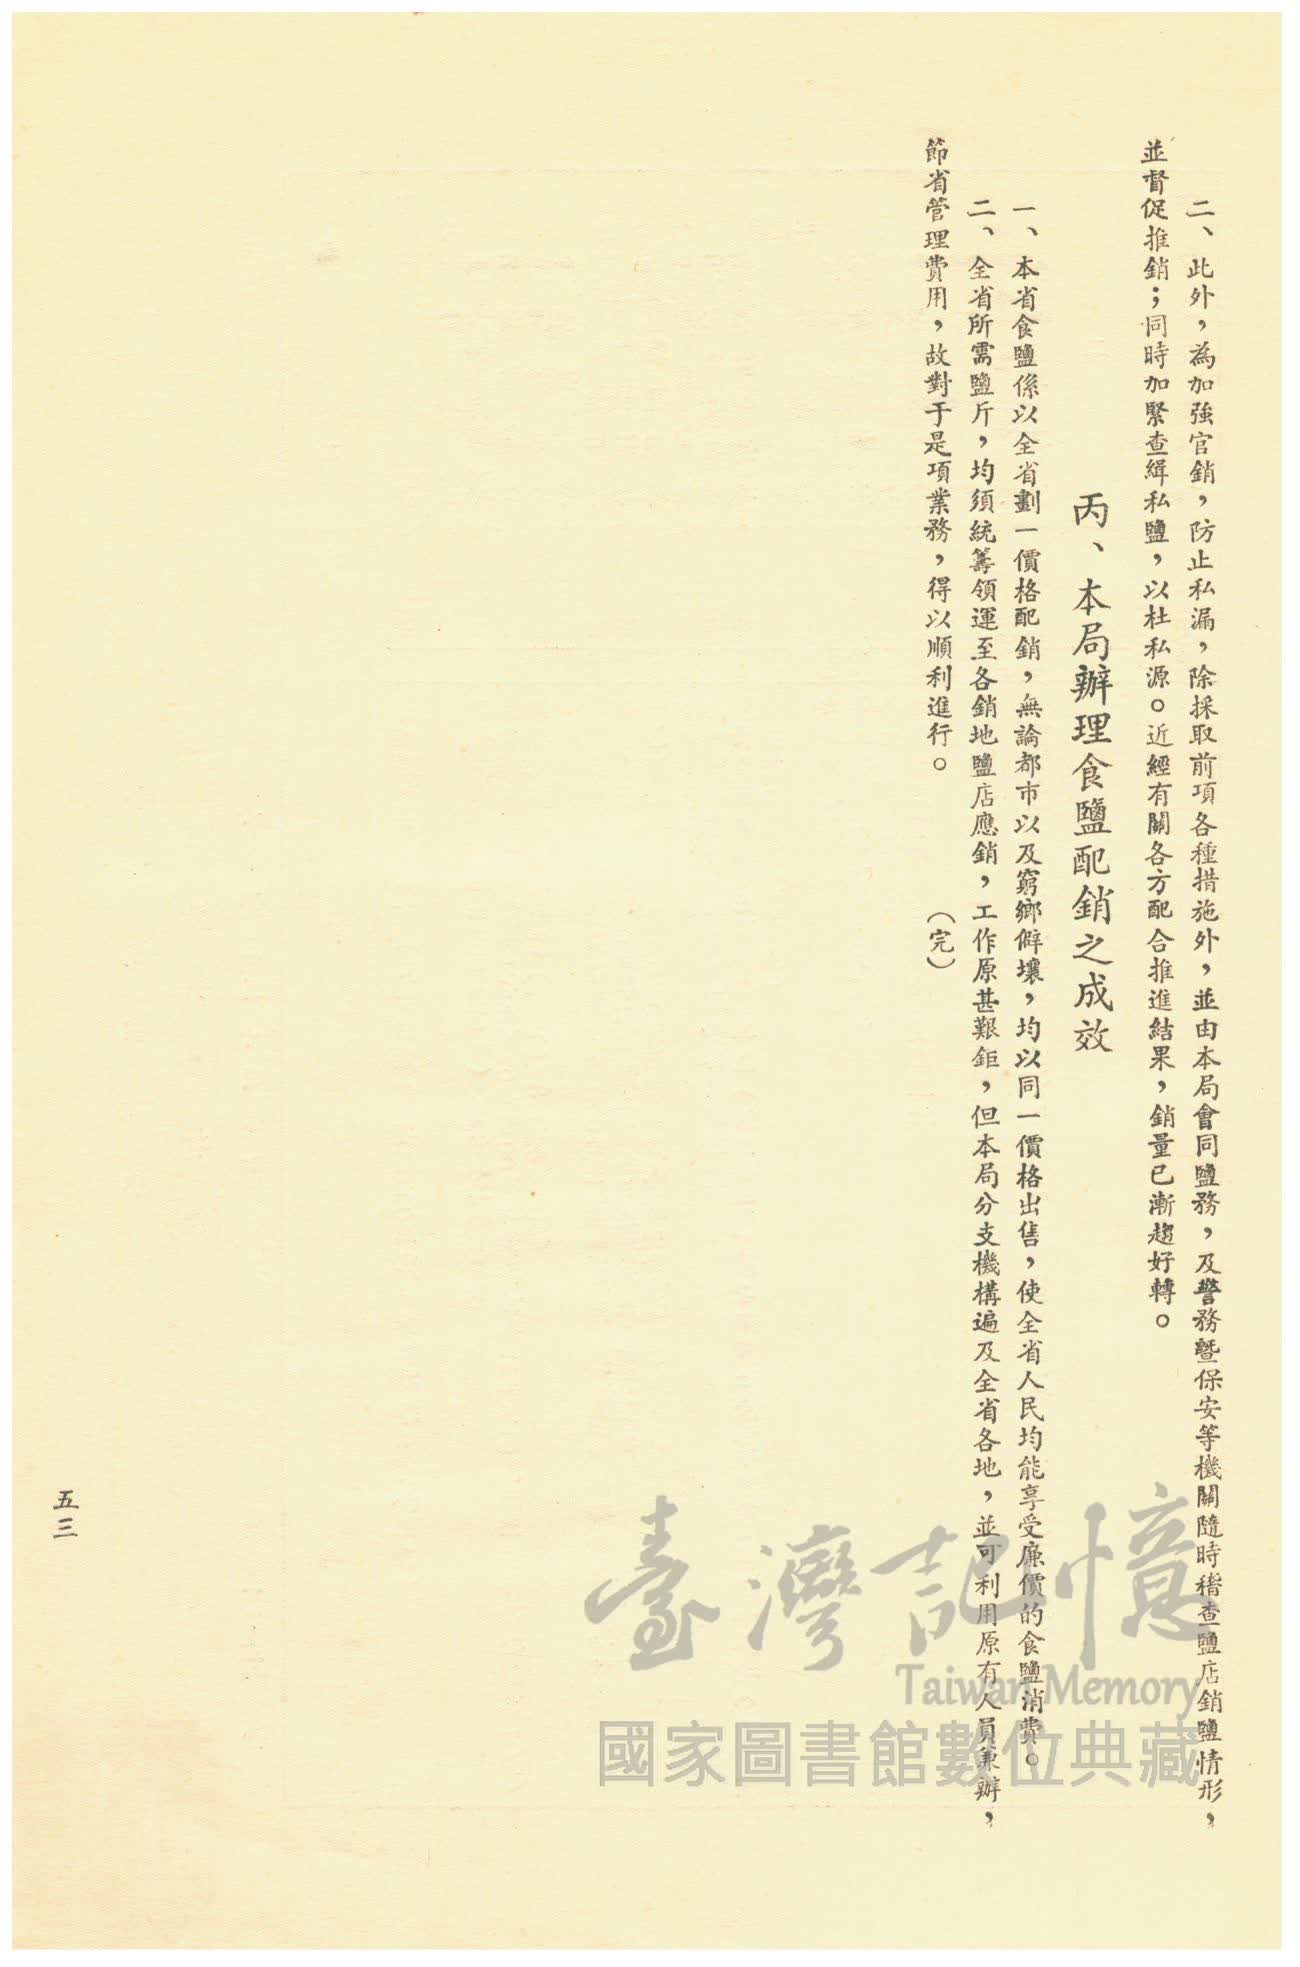 二、此外，為加強官銷，防止私漏，除採取前項各種措施外，並由本局會同鹽務，及警務暨保安等機關隨時稽查鹽店銷鹽情形，
並督促推銷；同時加緊查緝私鹽，以杜私源。近經有關各方配合推進結果，銷量已漸趨好轉。
丙、本局辦理食鹽配銷之成效
一、本省食鹽係以全省劃一價格配銷，無論都市以及窮鄉僻壤，均以同一價格出售，使全省人民均能享受廉價的食鹽消費。
二、全省所需鹽斤，均須統籌領運至各銷地鹽店應銷，工作原甚艱鉅，但本局分支機構遍及全省各地，並可利用原有人員兼辦，
節省管理費用，故對于是項業務，得以順利進行。（完）
五三
臺灣記憶
Taiwan Memory
國家圖書館數位典藏